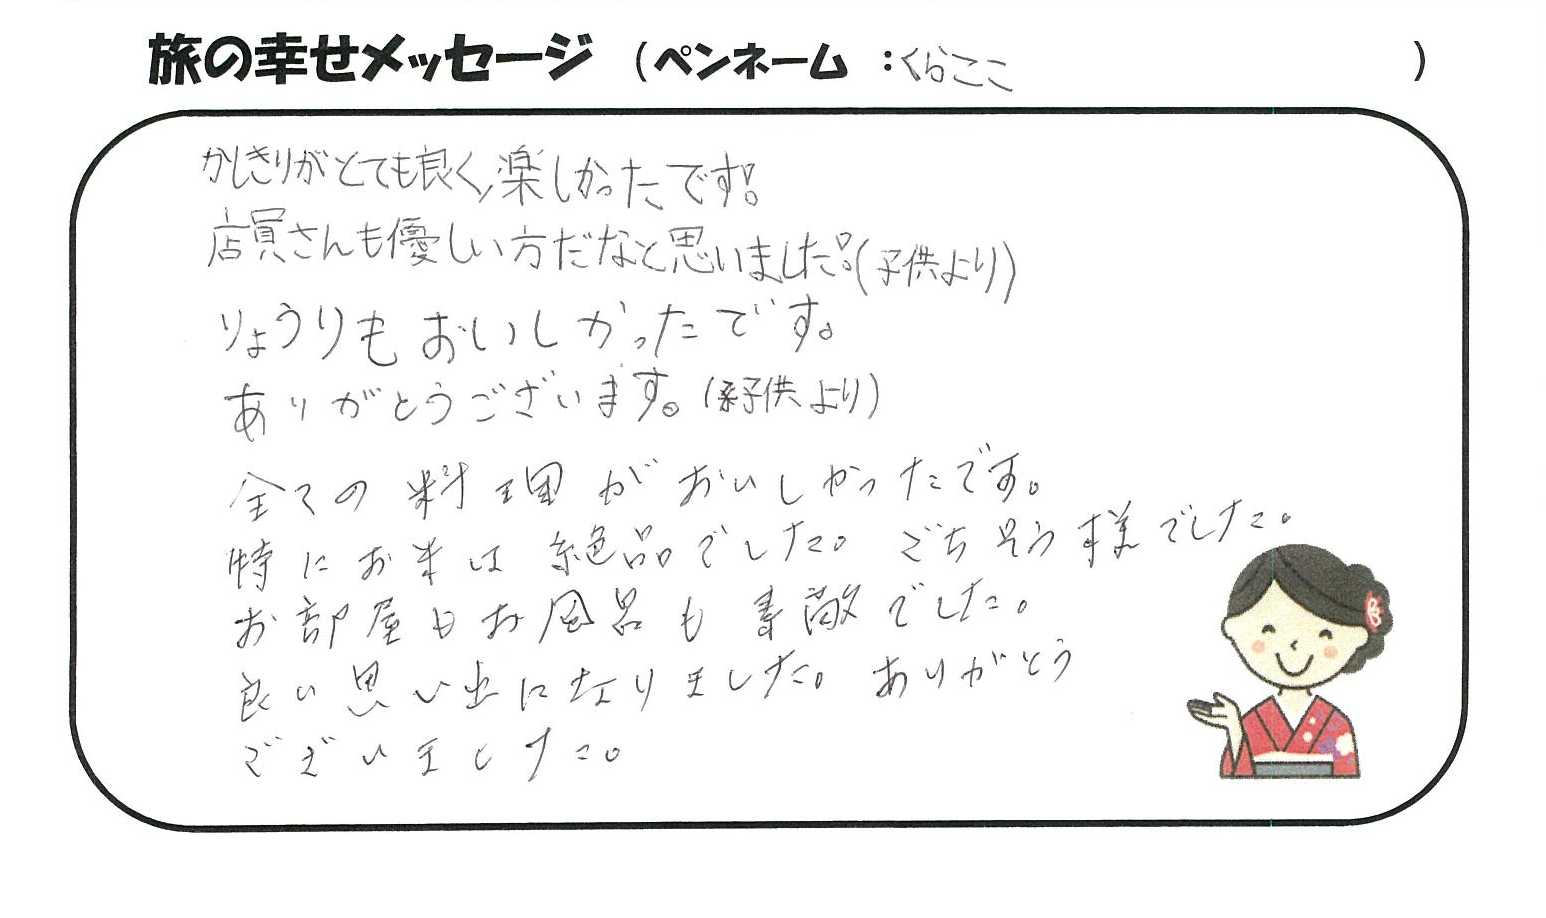 旅の幸せメッセージ (ペンネーム :くらここ )
かしきりがとても良く,楽しかったです!。
店員さんも優しい方だなと思いました!。(子供より)
りょうりもおいしかったです。
ありがとうございます。(子供より)
全ての料理がおいしかったです。
特にお米は絶品でした。ごちそう様でした。
お部屋もお風呂も素敵でした。
良い思い出になりました。ありがとう
ございました。